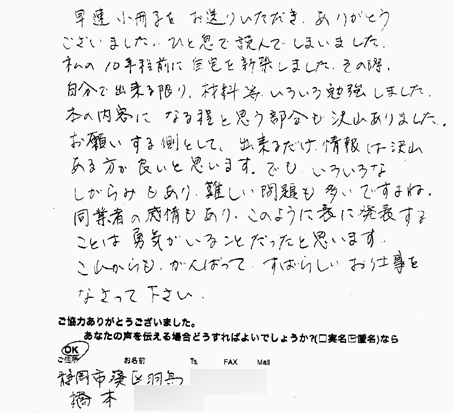 早速小冊子をお送りいただき、ありがとう
ございました。ひと息で読んでしまいました。
私の10年程前に自宅を新築しました。その際、
自分で出来る限り、材料等いろいろ勉強しました。
本の内容になる程と思う部分も沢山ありました。
お願いする側として、出来るだけ情報は沢山
ある方が良いと思います。でも、いろいろな
しがらみもあり、難しい問題も多いですよね。
同業者の感情もあり、このように表に発表する
ことは勇気がいることだったと思います。
これからも、がんばって、すばらしいお仕事を
なさって下さい。
ご協力ありがとうございました。
あなたの声を伝える場合どうすればよいでしょうか?(□実名☑匿名)なら
OK
ご住所 お名前 Te FAX Mail
静岡市葵区羽鳥
橋本